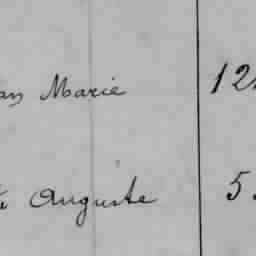 an Marie 12
Auguste 5